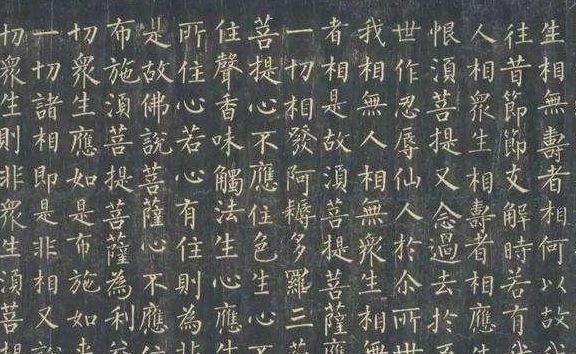 生相無壽者相何以故我
往昔節節支解時若有我
人相衆生相壽者相應生
恨須菩提又念過去於五
世作忍辱仙人於尒所世
我相無人相無衆生相無
者相是故須菩提菩薩應
一切相發阿耨多羅三藐
菩提心不應住色生心不
住聲香味觸法生心應生
所住心若心有住則為非
是故佛說菩薩心不應住
布施須菩提菩薩為利益
切衆生應如是布施如來
一切諸相即是非相又說
切衆生則非衆生須菩提